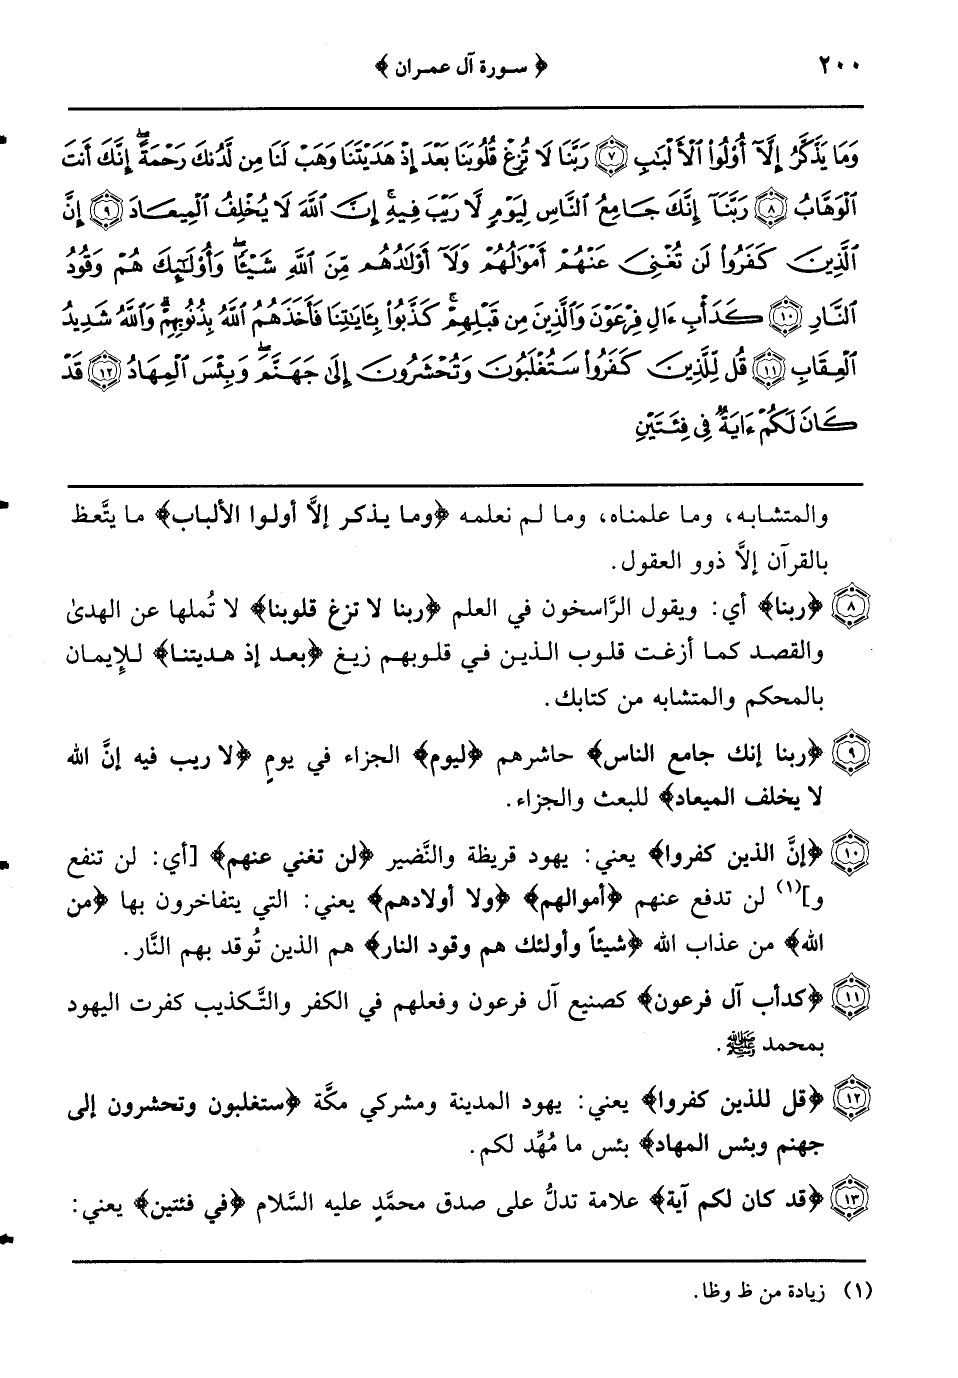 ٢٠٠
﴿ سورة آل عمران ﴾
وَمَا يَذَّكَّرُ إِلَّآ أُوْلُواْ ٱلْأَلْبَٰبِ ﴿٧﴾ رَبَّنَا لَا تُزِغْ قُلُوبَنَا بَعْدَ إِذْ هَدَيْتَنَا وَهَبْ لَنَا مِن لَّدُنكَ رَحْمَةً ۚ إِنَّكَ أَنتَ
ٱلْوَهَّابُ ﴿٨﴾ رَبَّنَآ إِنَّكَ جَامِعُ ٱلنَّاسِ لِيَوْمٍ لَّا رَيْبَ فِيهِ ۚ إِنَّ ٱللَّهَ لَا يُخْلِفُ ٱلْمِيعَادَ ﴿٩﴾ إِنَّ
ٱلَّذِينَ كَفَرُواْ لَن تُغْنِىَ عَنْهُمْ أَمْوَٰلُهُمْ وَلَآ أَوْلَٰدُهُم مِّنَ ٱللَّهِ شَيْـًٔا ۖ وَأُوْلَٰٓئِكَ هُمْ وَقُودُ
ٱلنَّارِ ﴿١٠﴾ كَدَأْبِ ءَالِ فِرْعَوْنَ وَٱلَّذِينَ مِن قَبْلِهِمْ ۚ كَذَّبُواْ بِـَٔايَٰتِنَا فَأَخَذَهُمُ ٱللَّهُ بِذُنُوبِهِمْ ۗ وَٱللَّهُ شَدِيدُ
ٱلْعِقَابِ ﴿١١﴾ قُل لِّلَّذِينَ كَفَرُواْ سَتُغْلَبُونَ وَتُحْشَرُونَ إِلَىٰ جَهَنَّمَ ۚ وَبِئْسَ ٱلْمِهَادُ ﴿١٢﴾ قَدْ
كَانَ لَكُمْ ءَايَةٌ فِى فِئَتَيْنِ
والمتشابه، وما علمناه، وما لم نعلمه ﴿وما يذكر إلَّا أولوا الألباب﴾ ما يتَّعظ
بالقرآن إلَّا ذوو العقول.
﴿٨﴾ ﴿ربنا﴾ أي: ويقول الرَّاسخون في العلم ﴿ربنا لا تزغ قلوبنا﴾ لا تُملها عن الهدىٰ
والقصد كما أزغت قلوب الذين في قلوبهم زيغ ﴿بعد إذ هديتنا﴾ للإيمان
بالمحكم والمتشابه من كتابك.
﴿٩﴾ ﴿ربنا إنك جامع الناس﴾ حاشرهم ﴿ليوم﴾ الجزاء في يومٍ ﴿لا ريب فيه إنَّ الله
لا يخلف الميعاد﴾ للبعث والجزاء.
﴿١٠﴾ ﴿إنَّ الذين كفروا﴾ يعني: يهود قريظة والنَّضير ﴿لن تغني عنهم﴾ [أي: لن تنفع
و](١) لن تدفع عنهم ﴿أموالهم﴾ ﴿ولا أولادهم﴾ يعني: التي يتفاخرون بها ﴿من
الله﴾ من عذاب الله ﴿شيئاً وأولئك هم وقود النار﴾ هم الذين تُوقد بهم النَّار.
﴿١١﴾ ﴿كدأب آل فرعون﴾ كصنيع آل فرعون وفعلهم في الكفر والتَّكذيب كفرت اليهود
بمحمد ﷺ.
﴿١٢﴾ ﴿قل للذين كفروا﴾ يعني: يهود المدينة ومشركي مكَّة ﴿ستغلبون وتحشرون إلى
جهنم وبئس المهاد﴾ بئس ما مُهِّد لكم.
﴿١٣﴾ ﴿قد كان لكم آية﴾ علامة تدلُّ على صدق محمَّدٍ عليه السَّلام ﴿في فئتين﴾ يعني:
(١) زيادة من ظ وظا.